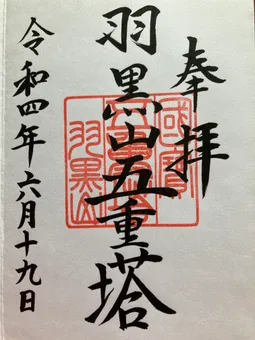 奉拝
羽黒山五重塔
令和四年六月十九日
國寶
五重塔
羽黒山